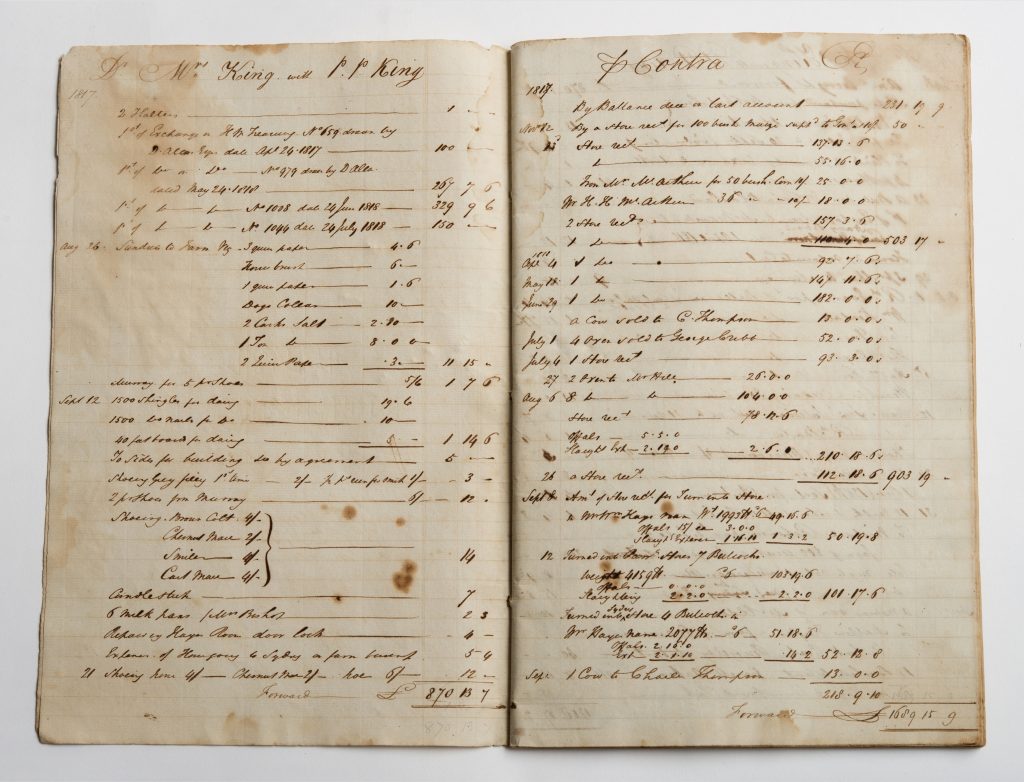 Dr Mrs King with P. P King
1817.
2 Halters 1 -
1st of Exchange on H M Treasury No 659 drawn by
D Allan Esqr date Apl 24. 1817 100
1st of Do on Do No 979 drawn by D Allan
dated May 24. 1818 267 7 6
1st of Do Do No 1008 date 24 June 1818 329 9 6
1st of Do Do No 1044 date 24 July 1818 150 -
Aug 26 Sundries to Farm 3 quire paper 4.6
Horse brush 6.
1 quire paper 1.6
Dogs Collar 10
2 Casks Salt
1 Do 8.0.0
2 Quire Paper 3. 11 15 -
Murray for 5 pr Shoes 5/6 1 7 6
Sept 12 1500 Shingles for dairy 19.6
1500 Do nails for Do 10
40 feet board for dairy 5 1 14 6
To Sides for building Do by agreement 5 -
Shoeing Grey filly 1st time 2/- 3 -
2 pr Shoes from Murray 6/ 12 -
Shoeing Brown Colt 4/-
Chesnut Mare 2/-
Smiler 4/-
Cart Mare 4/-
14
Candlestick 7
6 Milk pans 2 3
Repairing Hayes Room door lock 4 -
Expences of to Sydney on farm 5 4
21 Shoeing 4/- Chesnut Mare 2/- hoe 6/ 12 -
Forward £ 870 13 7
870.13
Pr Contra Cr
1817.
By Ballance due on last account 231 19 9
Novr 12 By a Store rect for 100 bush Maize 50 -
Store rect 137.13.6
Do 55.16.0
From Mr McArthur for 50 bush Corn 10/ 25.0.0
Mr H. H McArthur 36 10/ 18.0.0
2 Store rects 157.3.6
1 Do 503 17 -
1818
Apl 4 1 Do 92.7.6
May 18 1 Do 147.11.6
June 29 1 Do 182.0.0
a Cow sold to C. Thompson 13.0.0
July 1 4 Oxen sold to George Cribb 52.0.0
July 4 1 Store rect 93.3.0
27 2 Oxen to Mr Hill 26.0.0
Aug 6 8 Do Do 104.0.0
Store rect 78.12.6
Offals 5.5.0
Slaughtg 2.19.0 2.6.0 210.18.6
26 a Store rect 112.18.6 903 19 -
Sept 8 Amt of Store rect for Turned into Store
Wt 1993 lb 6 49.16.6
Offals 15/ ea 3.0.0
Slaughtg Expences 1.16.10 1.3.2 50.19.8
12 Turned into Stores 7 Bullocks
Weight 4159 lb 6 103.19.6
Offals 0.0.0
Slaughtering 2.2.0 2.2.0 101.17.6
Turned into Sydney Store 4 Bullocks
2077 lb 6 51.18.6
Offals 2.15.0
14.2 52.12.8
Sept. 1 Cow to Charles Thompson 13.0.0
218.9.10
Forward £ 1689 15 9